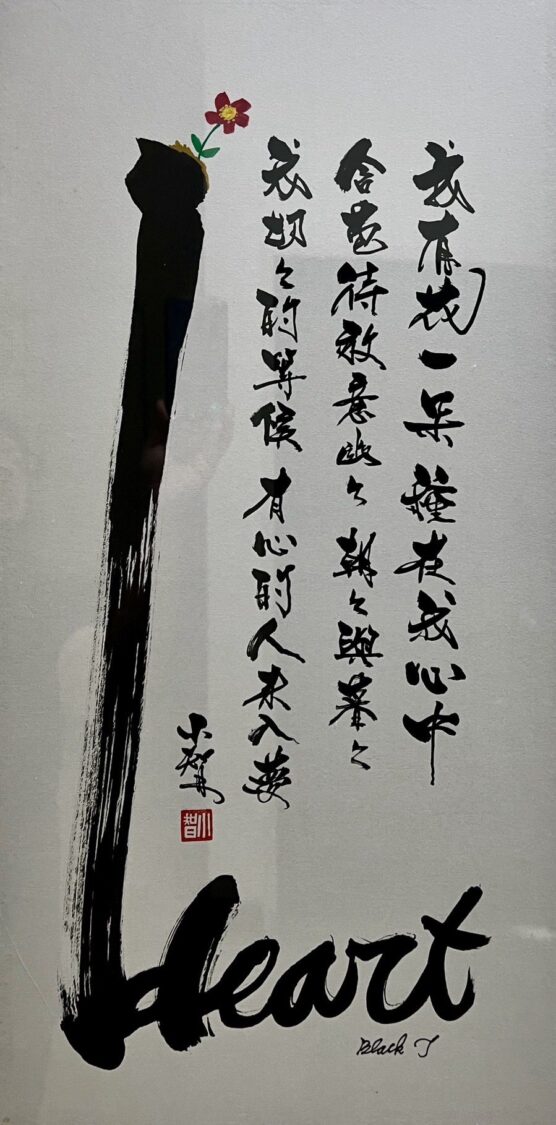 我有花一朵 種在我心中
含苞待放意幽々 朝々與暮々
我切々的等候 有心的人來入夢
小智
小智
Heart
Black J